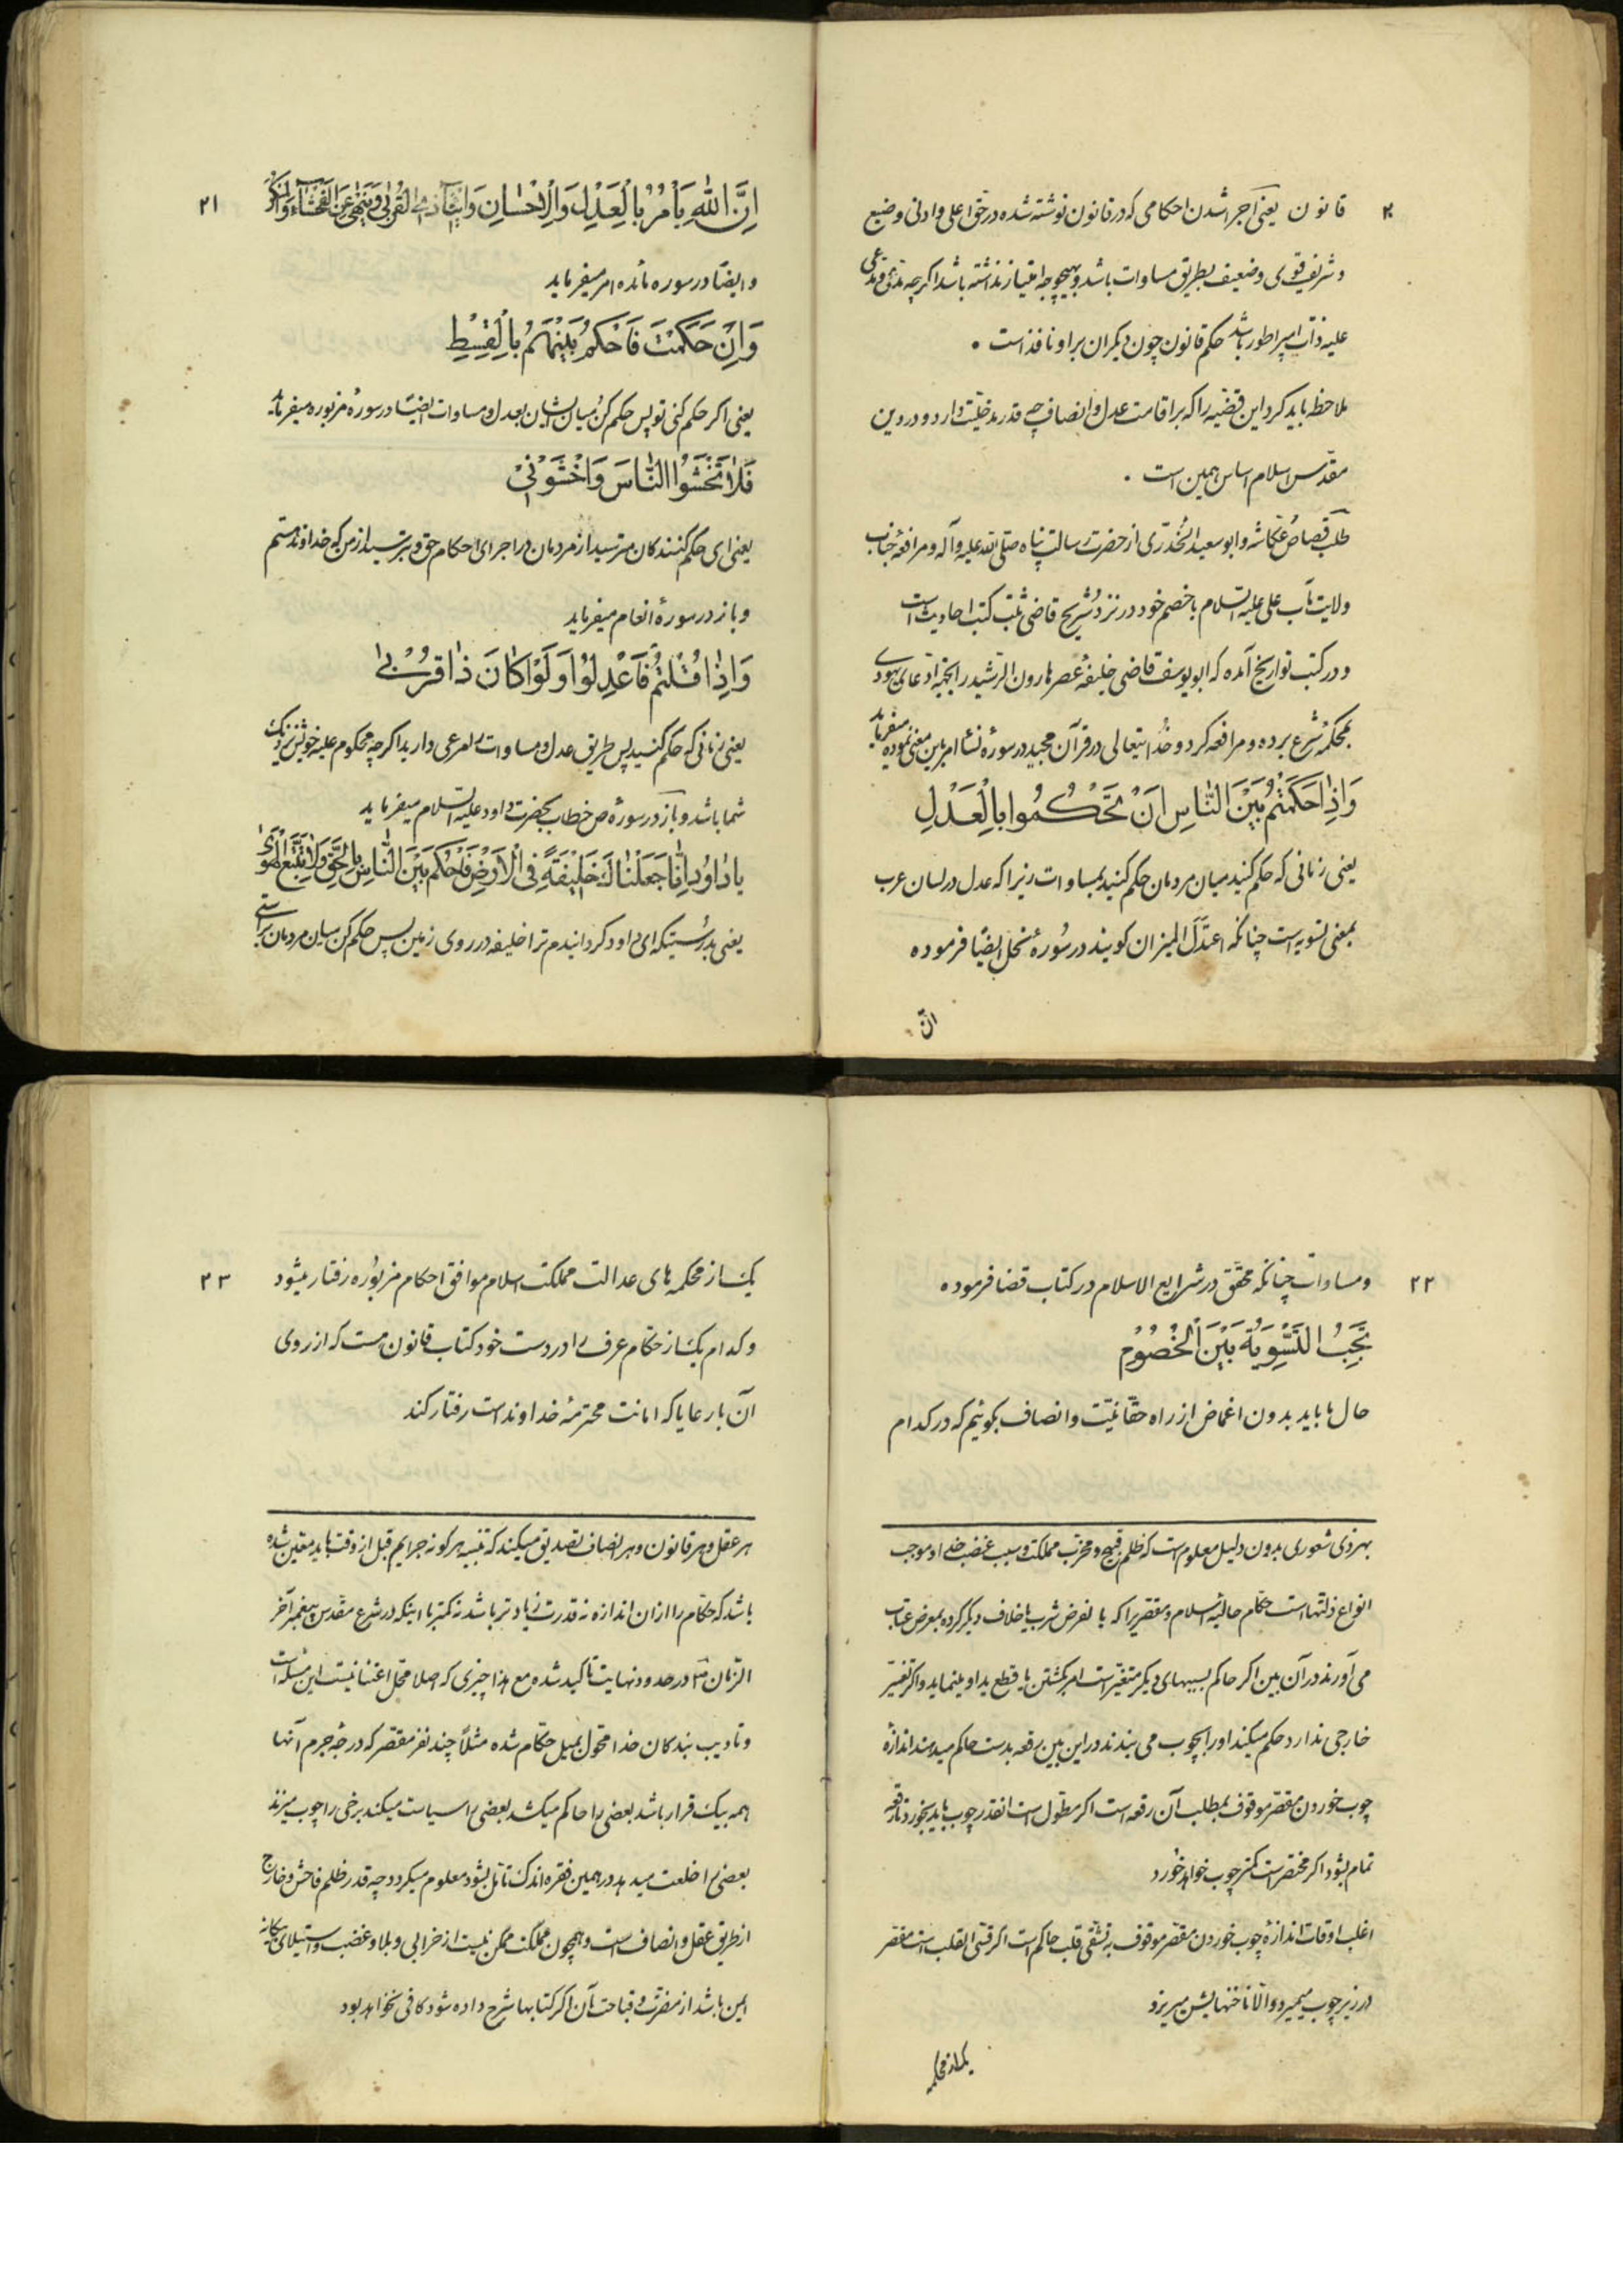 ۲۰
قانون یعنی اجرا شدن احکامی که در قانون نوشته شده در حق اعلی و ادنی وضیع
و شریف قوی و ضعیف بطریق مساوات باشد و بهیچوجه امتیاز نداشته باشد اگرچه مدعی و مدعی
علیه ذات امپراطور باشد حکم قانون چون دیگران بر او نافذ است ۰
ملاحظه باید کرد این قضیه را که بر اقامت عدل و انصاف چه قدر مدخلیت دارد و در دین
مقدس اسلام اساس همین است ۰
طلب قصاص عکاشه و ابو سعید الخدری از حضرت رسالت پناه صلی الله علیه و آله و مرافعه جناب
ولایت مآب علی علیه السلام با خصم خود در نزد شریح قاضی ثبت کتب احادیث است
و در کتب تواریخ آمده که ابو یوسف قاضی خلیفه عصر هارون الرشید را بجهة ادعای یهودی
بمحکمه شرع برده و مرافعه کرد و خدایتعالی در قرآن مجید در سوره نسا امر باین معنی نموده میفرماید
وَاِذٰا حَكَمْتُمْ بَيْنَ النّٰاسِ اَنْ تَحْكُمُوا بِالْعَدْلِ
یعنی زمانی که حکم کنید میان مردمان حکم کنید بمساوات زیرا که عدل در لسان عرب
بمعنی تسویه است چنانکه اعتدل المیزان گویند در سوره نحل ایضاً فرموده
انّ
۲۱
اِنَّ اللّٰهَ يَأْمُرُ بِالْعَدْلِ وَالْاِحْسٰانِ وَاِيتٰاءِ ذِي الْقُرْبٰى وَيَنْهٰى عَنِ الْفَحْشٰاءِ وَالْمُنْكَرِ
و ایضاً در سوره مائده امر میفرماید
وَاِنْ حَكَمْتَ فَاحْكُمْ بَيْنَهُمْ بِالْقِسْطِ
یعنی اگر حکم کنی تو پس حکم کن میان ایشان بعدل و مساوات ایضاً در سوره مزبوره میفرماید
فَلٰا تَخْشَوُا النّٰاسَ وَاخْشَوْنِي
یعنی ای حکم کنندکان مترسید از مردمان در اجرای احکام حق و بترسید از من که خداوند هستم
و باز در سوره انعام میفرماید
وَاِذٰا قُلْتُمْ فَاعْدِلُوا وَلَوْ كٰانَ ذٰا قُرْبٰى
یعنی زمانی که حکم کنید پس طریق عدل و مساوات را مرعی دارید اگرچه محکوم علیه خویش نزدیک
شما باشد و باز در سوره ص خطاب بحضرت داود علیه السلام میفرماید
يٰا دٰاوُدُ اِنّٰا جَعَلْنٰاكَ خَلِيفَةً فِي الْاَرْضِ فَاحْكُمْ بَيْنَ النّٰاسِ بِالْحَقِّ وَلٰا تَتَّبِعِ الْهَوٰى
یعنی بدرستیکه ای داود کردانیدم ترا خلیفه در روی زمین پس حکم کن میان مردمان براستی
۲۲
و مساوات چنانکه محقق در شرایع الاسلام در کتاب قضا فرموده
تَجِبُ التَّسْوِيَةُ بَيْنَ الْخُصُومِ
حال ما باید بدون اغماض از راه حقانیت و انصاف بگوئیم که در کدام
بهر ذی شعوری بدون دلیل معلوم است که ظلم قبیح و مخرب مملکت و سبب غضب خدا و موجب
انواع ذلتهاست حکام حالیه اسلام مقصریرا که بالفرض شرب یا خلاف دیگر کرده بمعرض عتاب
می آورند در آن بین اگر حاکم بسببهای دیگر متغیر است امر بکشتن یا قطع ید او مینماید و اگر تغیّر
خارجی ندارد حکم میکند او را بچوب می بندند در این بین رقعه بدست حاکم میدهند اندازه
چوب خوردن مقصر موقوف بمطلب آن رقعه است اگر مطول است انقدر چوب باید بخورد تا رقعه
تمام بشود اگر مختصر است کمتر چوب خواهد خورد
اغلب اوقات اندازه چوب خوردن مقصر موقوف به تشفی قلب حاکم است اگر قسی القلب است مقصر
در زیر چوب میمیرد و الا ناخنهایش میریزد
یک از محکمه
۲۳
یک از محکمه های عدالت مملکت اسلام موافق احکام مزبوره رفتار میشود
و کدام یک از حکام عرف را در دست خود کتاب قانون هست که از روی
آن با رعایا که امانت محترمه خداوند است رفتار کند
هر عقل و هر قانون و هر انصاف تصدیق میکند که تنبیه هر کونه جرایم قبل از وقت باید معین شده
باشد که حکام را از آن اندازه نه قدرت زیادتر باشد نه کمتر با اینکه در شرع مقدس پیغمبر آخر
الزمان ص در حدود نهایت تاکید شده مع هذا چیزی که اصلا محل اعتنا نیست این مسئله است
و تادیب بندکان خدا محول بمیل حکام شده مثلاً چند نفر مقصر که درجه جرم آنها
همه بیک قرار باشد بعضی را حاکم میکشد بعضی را سیاست میکند برخی را چوب میزند
بعضی را خلعت میدهد در همین فقره اندک تامل بشود معلوم میکردد چه قدر ظلم فاحش و خارج
از طریق عقل و انصاف است و همچون مملکت ممکن نیست از خرابی و بلا و غضب و استیلای بیگانه
ایمن باشد از مضرت و قباحت آن اگر کتابها شرح داده شود کافی نخواهد بود